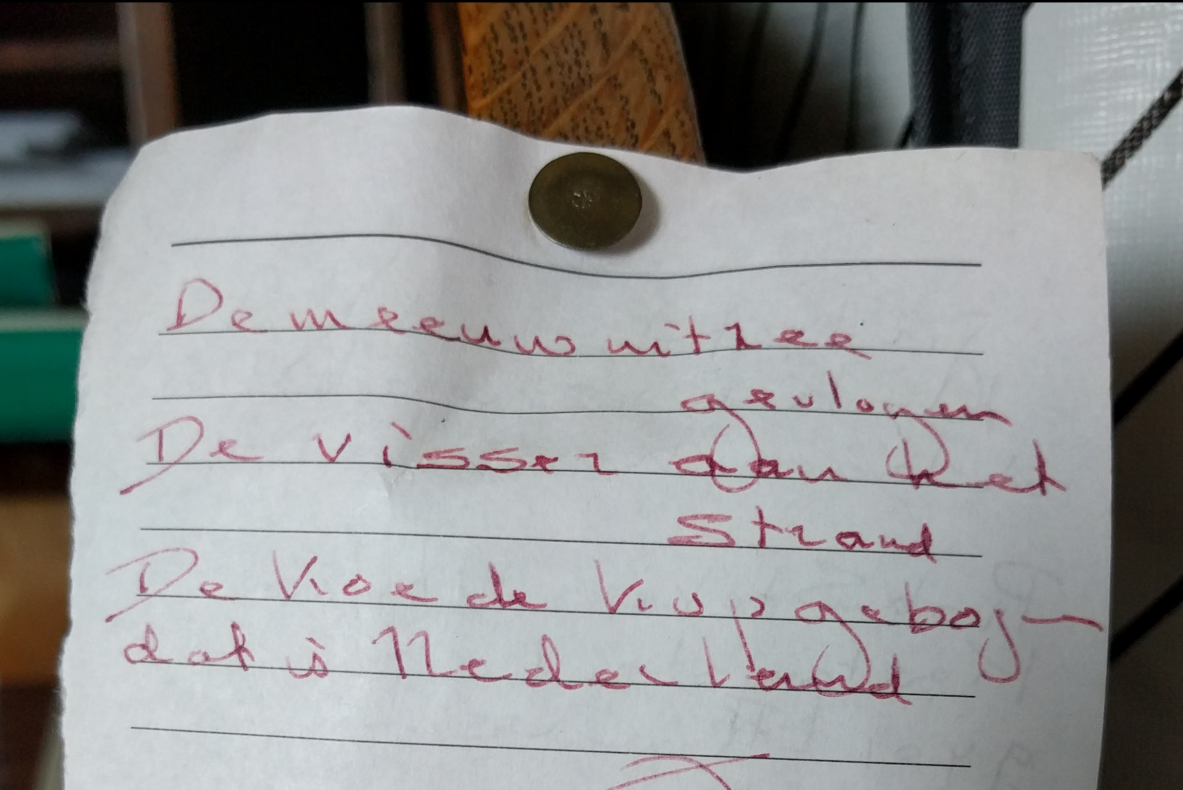 De meeuw uit zee
gevlogen
De visser aan het
strand
De koe de kop gebog
dat is Nederland